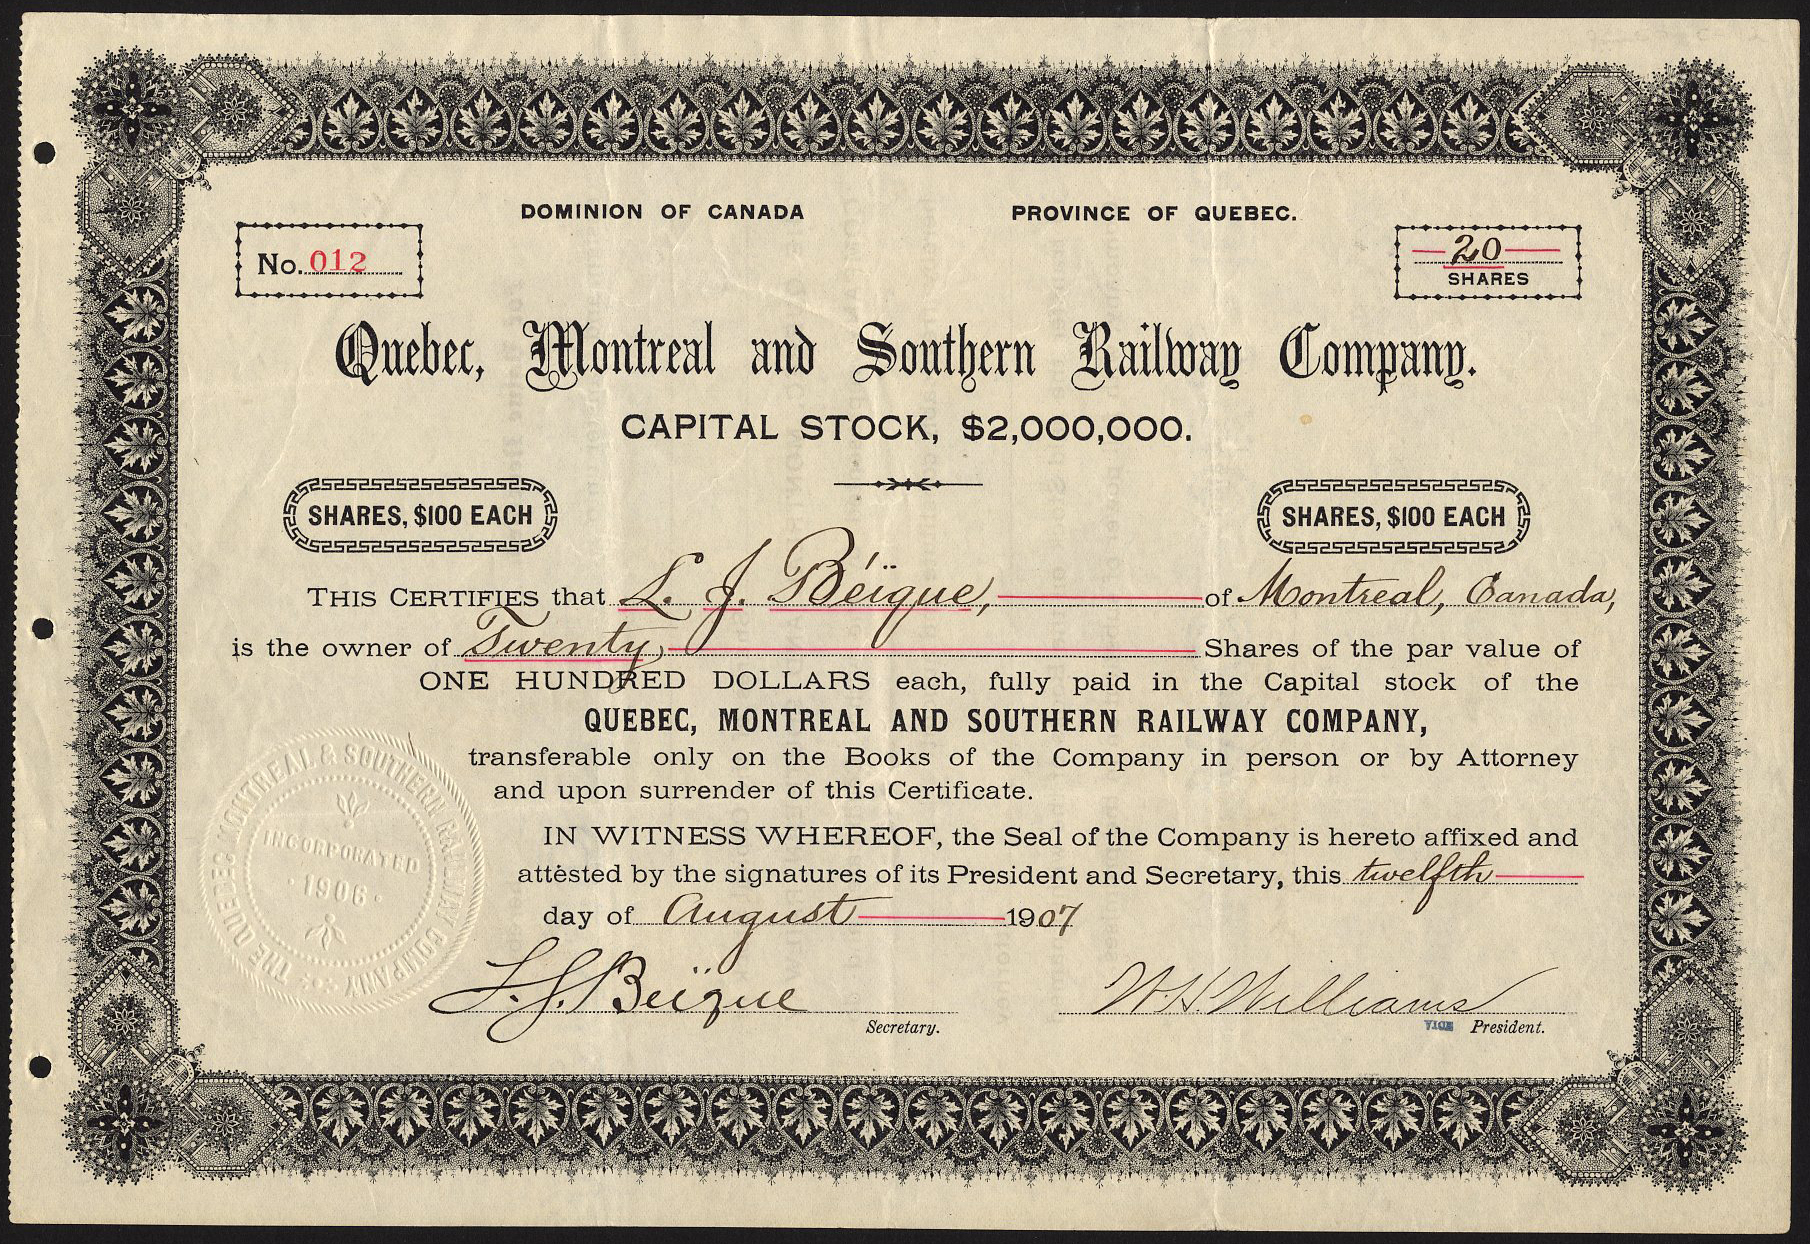 DOMINION OF CANADA PROVINCE OF QUEBEC.
No. 012
20
SHARES
Quebec, Montreal and Southern Railway Company.
CAPITAL STOCK, $2,000,000.
SHARES, $100 EACH SHARES, $100 EACH
THIS CERTIFIES that L. J. Béïque, of Montreal, Canada,
is the owner of Twenty, Shares of the par value of
ONE HUNDRED DOLLARS each, fully paid in the Capital stock of the
QUEBEC, MONTREAL AND SOUTHERN RAILWAY COMPANY,
transferable only on the Books of the Company in person or by Attorney
and upon surrender of this Certificate.
IN WITNESS WHEREOF, the Seal of the Company is hereto affixed and
attested by the signatures of its President and Secretary, this twelfth
day of August 1907
THE QUEBEC MONTREAL & SOUTHERN RAILWAY COMPANY
INCORPORATED
1906
L. J. Béïque W H Williams
Secretary. VICE President.